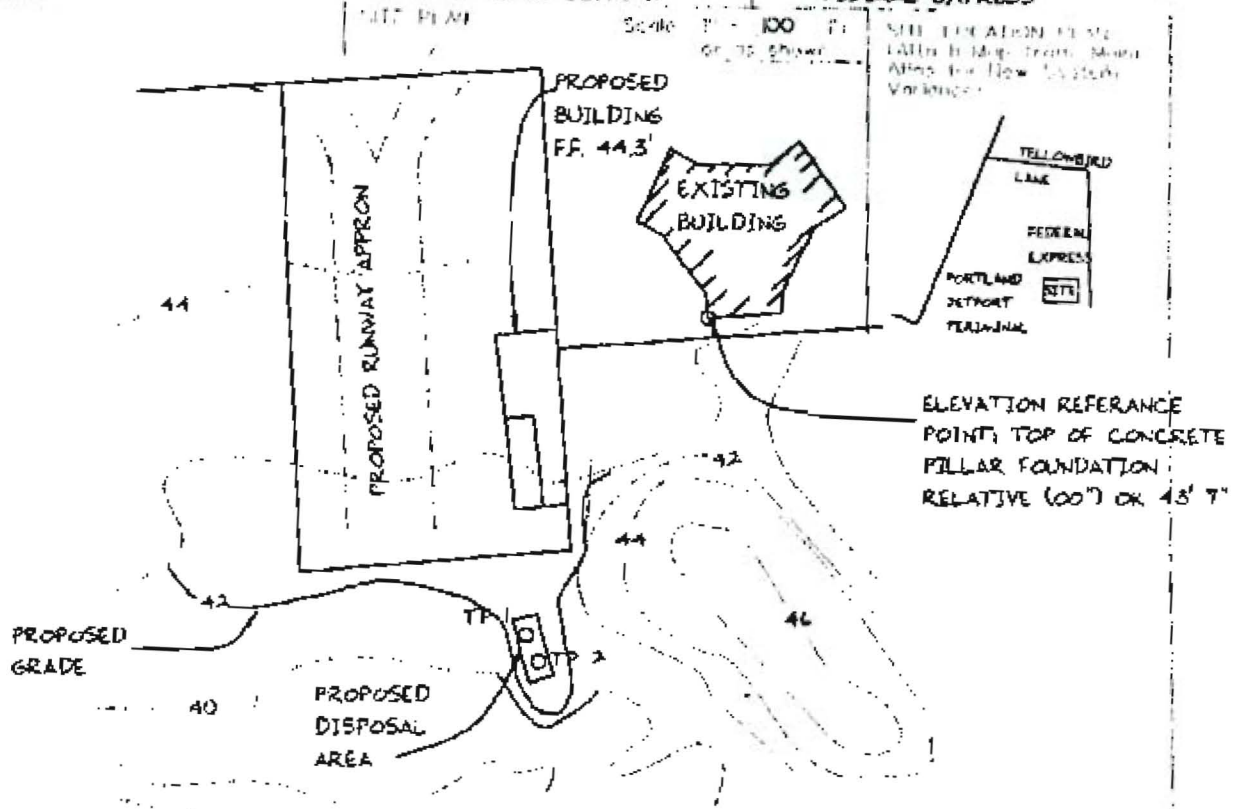 EXPRESS
SITE PLAN
Scale 1" = 100 Ft
or as shown
SITE LOCATION PLAN
(Attach Map from Maine
Atlas for New System
Variance)
PROPOSED
BUILDING
F.F. 44.3'
EXISTING
BUILDING
YELLOWBIRD
LANE
FEDERAL
EXPRESS
SITE
PORTLAND
JETPORT
TERMINAL
PROPOSED RUNWAY APPRON
44
ELEVATION REFERANCE
POINT; TOP OF CONCRETE
PILLAR FOUNDATION
RELATIVE (00") OR 43' 7"
42
44
46
42
PROPOSED
GRADE
TP 1
TP 2
40
PROPOSED
DISPOSAL
AREA